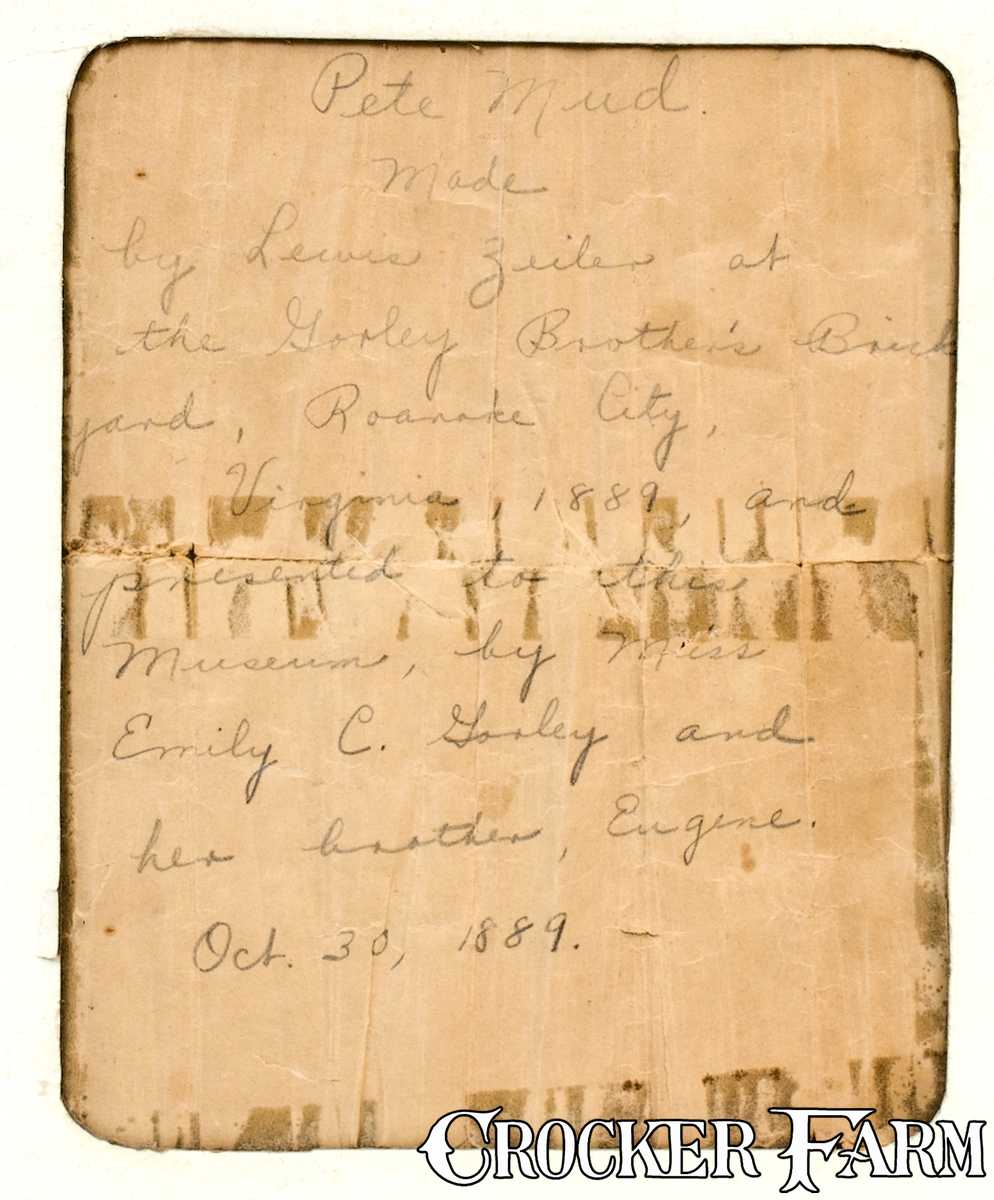 Pete Mud.
Made
by Lewis Zeiler at
the Gorley Brother's Brick
yard, Roanoke City,
Virginia, 1889, and
presented to this
Museum, by Miss
Emily C. Gorley and
her brother, Eugene.
Oct. 30, 1889.
CROCKER FARM